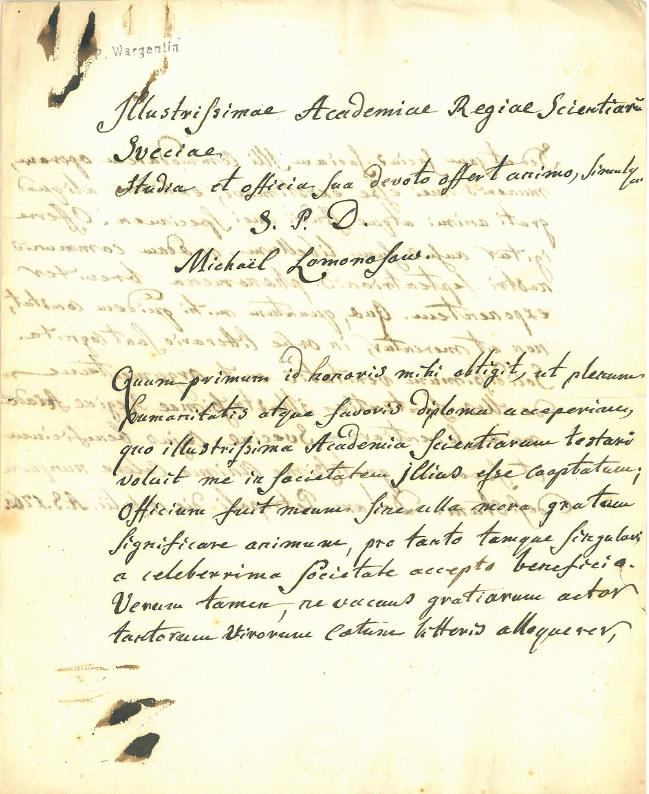 P. Wargentin
Illustrissimae Academiae Regiae Scientiarū
Sveciae
Studia et officia sua devoto offert animo, simulq
S. P. D.
Michaël Lomonosow.
Quam primum id honoris mihi obtigit, ut plenum
humanitatis atque favoris diploma acceperim,
quo illustrissima Academia Scientiarum testari
voluit me in societatem illius esse cooptatum;
Officium fuit meum sine ulla mora gratum
significare animum, pro tanto tamque singulari
a celeberrima Societate accepto beneficio.
Verum tamen, ne vacuus gratiarum actor
tantorum virorum Cœtum litteris alloquerer,